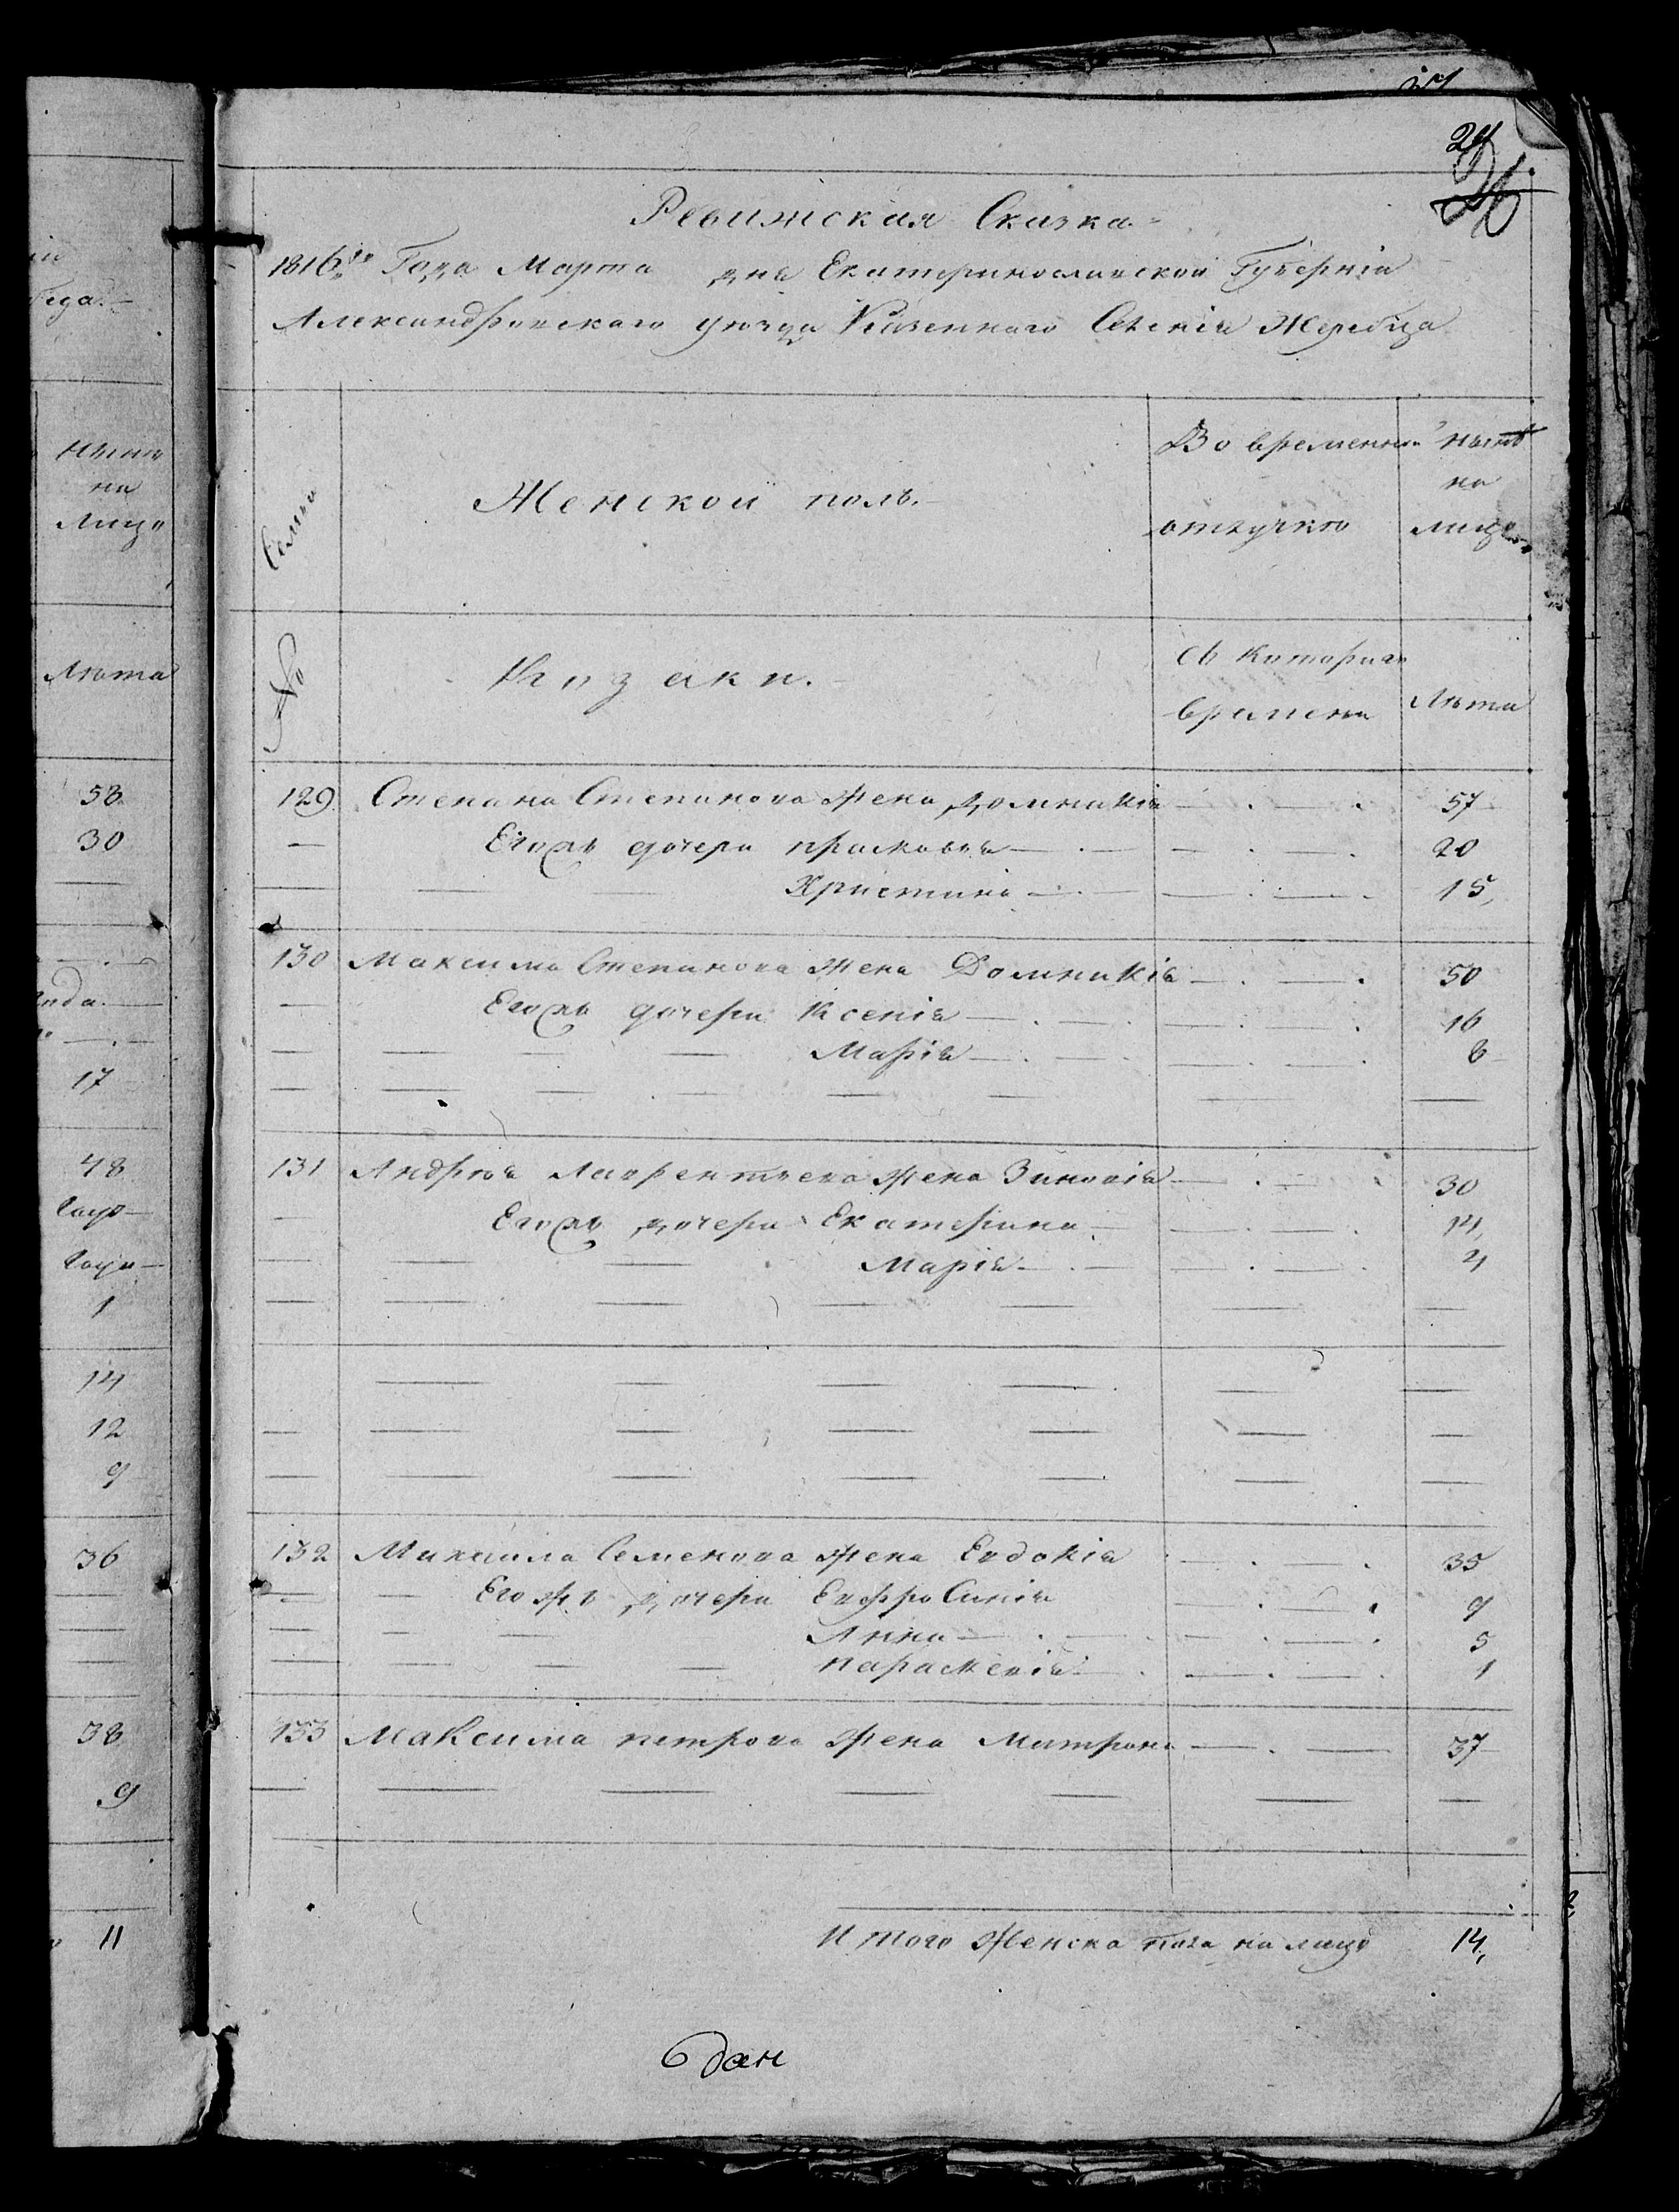 24
26
Ревижская Сказка
1816го Года Марта дня Екатеринославской Губернiи
Александровскаго уезда Казенного Селенiя Жеребца
Семьи
Женской полъ.
Во временной
отлучкѣ
нынѣ
на
лицо
№
Козаки.
Съ котораго
времени
Лѣта
129 Степана Степанова жена Домникiя 57
Егожъ дочери Прасковья 20
Христина 15
130 Максима Степанова жена Домникiя 50
Егожъ дочери Ксенiя 16
Марiя 8
131 Андрѣя Лаврентьева жена Зиновiя 30
Егожъ дочери Екатерина 14
Марiя 4
132 Михаила Семенова жена Евдокiя 35
Егожъ дочери Евфросинiя 9
Анна 5
Параскевiя 1
133 Максима Петрова жена Матрона 37
Итого женска пола на лицо 14
дан
нынѣ
на
Лицо
Лѣта
58
30
17
48
1
14
12
9
36
38
9
11